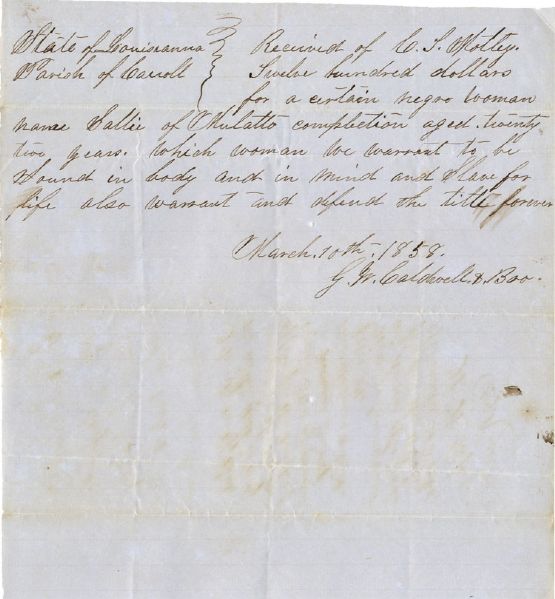 State of Louisianna Received of C. S. Motley.
Parish of Carroll Twelve hundred dollars
for a certain negro woman
name Sallie of Mulatto complection aged twenty
two years. Which woman we warrant to be
Sound in body and in mind and Slave for
life also warrant and defend the title forever
March 10th. 1858.
G. W. Caldwell & Bro.